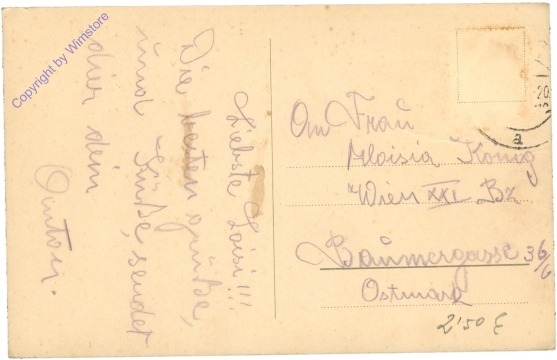 Liebste Loisi!!!
Die besten Grüße,
und Küße, sendet
dir dein
Anton.
An Frau
Aloisia König
Wien XXI. Bz
Baumergasse 36/6
Ostmark
2'50 €
20.
a
Copyright by Wimstore